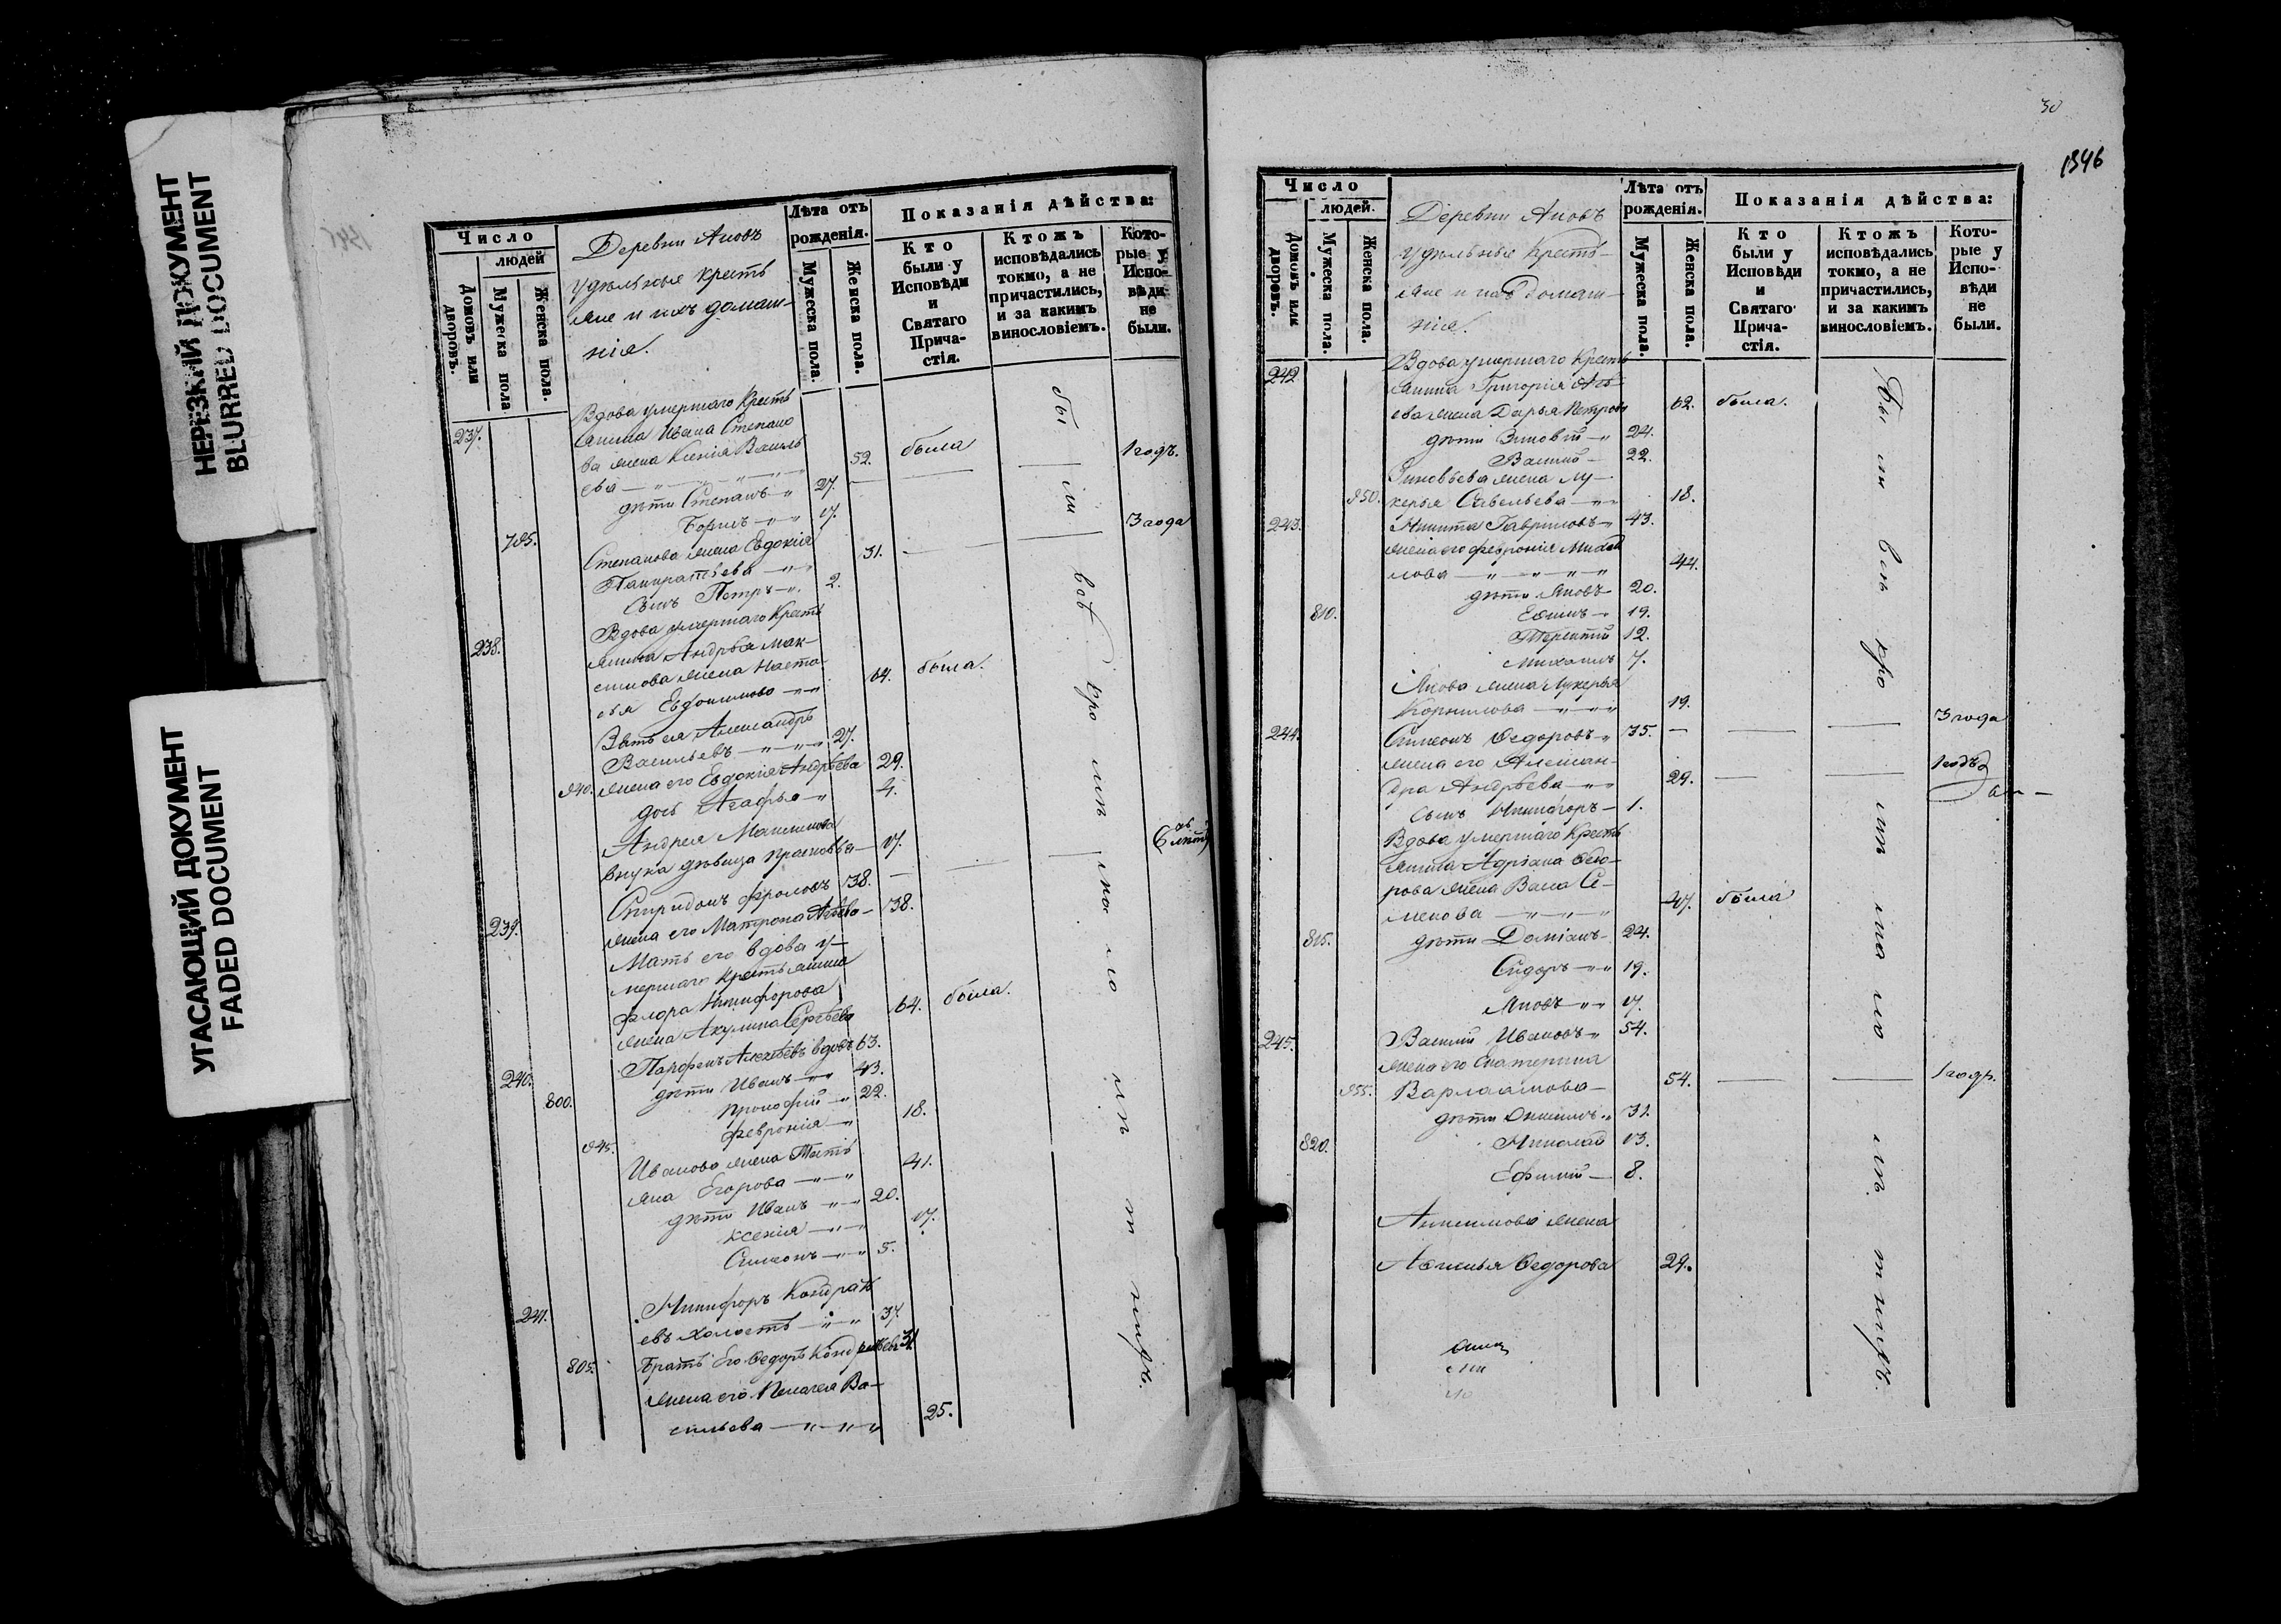 НЕРЕЗКИЙ ДОКУМЕНТ
BLURRED DOCUMENT
УГАСАЮЩИЙ ДОКУМЕНТ
FADED DOCUMENT
Число
людей
Домовъ или дворовъ.
Мужеска пола
Женска пола.
Деревни
удѣльныя кресть
яне и ихъ домаш-
нія.
Лѣта отъ рожденія.
Мужеска пола.
Женска пола.
Показанія дѣйства:
Кто были у Исповѣди и Святаго Прича-стія.
Ктожъ исповѣдались токмо, а не причастились, и за какимъ винословіемъ.
Кото-рые у Испо-вѣди не были.
237.
Вдова умершаго Кресть
янина Ивана Степано
ва жена Ксенія Василь
ева 52. была 1 годъ.
дѣти Степанъ 27.
795. Борисъ 17. 3 года
Степанова жена Евдокія
Панкратьева 31.
Сынъ Петръ 2.
238. Вдова умершаго Кресть
янина Андрея Мак-
симова жена Наста
сья 64. была.
Зять ея Александръ
Васильевъ 27.
940. жена его Евдокія Андрѣева 29.
дочь Агафья 4.
Андрея Максимова
внука дѣвица Прасковья 17.
239. Спиридонъ Фроловъ 38.
жена его Матрона 38.
Мать его вдова у-
мершаго крестьянина
Флора Никифорова
жена Акулина Сергѣева 64. была.
240. Парфенъ Алексѣевъ вдовъ 63.
800. дѣти Иванъ 43.
Прокофій 22.
945. Февронія 18.
Иванова жена Тать
яна Егорова 41.
дѣти Иванъ 20.
Ксенія 17.
Симеонъ 5.
241. Никифоръ Кондрать
евъ холостъ 37.
805. Братъ Его Ѳедоръ Кондратьевъ 31.
жена его Пелагея Ва-
сильева 25.
30
1346
Число
людей.
Домовъ или дворовъ.
Мужеска пола.
Женска пола.
Деревни
удѣльныя кресть-
яне и ихъ домаш-
нія.
Лѣта отъ рожденія.
Мужеска пола.
Женска пола.
Показанія дѣйства:
Кто были у Исповѣди и Святаго Прича-стія.
Ктожъ исповѣдались токмо, а не причастились, и за какимъ винословіемъ.
Кото-рые у Испо-вѣди не были.
242 Вдова умершаго Кресть
янина Григорія
жена Дарья Петрова 62. была.
дѣти Зиновій 24.
Василій 22.
Зиновьева жена Лу-
950. керья Савельева 18.
243. Никита Гавриловъ 43.
жена его Февронія Михай
лова 44.
дѣти Яковъ 20.
810. 19.
Терентій 12.
Михаилъ 7.
Якова жена Лукерья
Корнилова 19.
244. Симеонъ Ѳедоровъ 35. 3 года
жена его Алексан-
дра Андрѣева 29. 1 годъ
сынъ Никифоръ 1.
Вдова умершаго Кресть
янина Адріана Ѳедо-
рова жена Васса Се-
менова 47. была
815. дѣти Даміанъ 24.
Сидоръ 19.
Яковъ 17.
245. Василій Ивановъ 54.
жена его Екатерина
955. Варлаамова 54. 1 годъ.
дѣти 31.
820. Николай 13.
Ефимій 8.
жена
Ѳедорова 29.